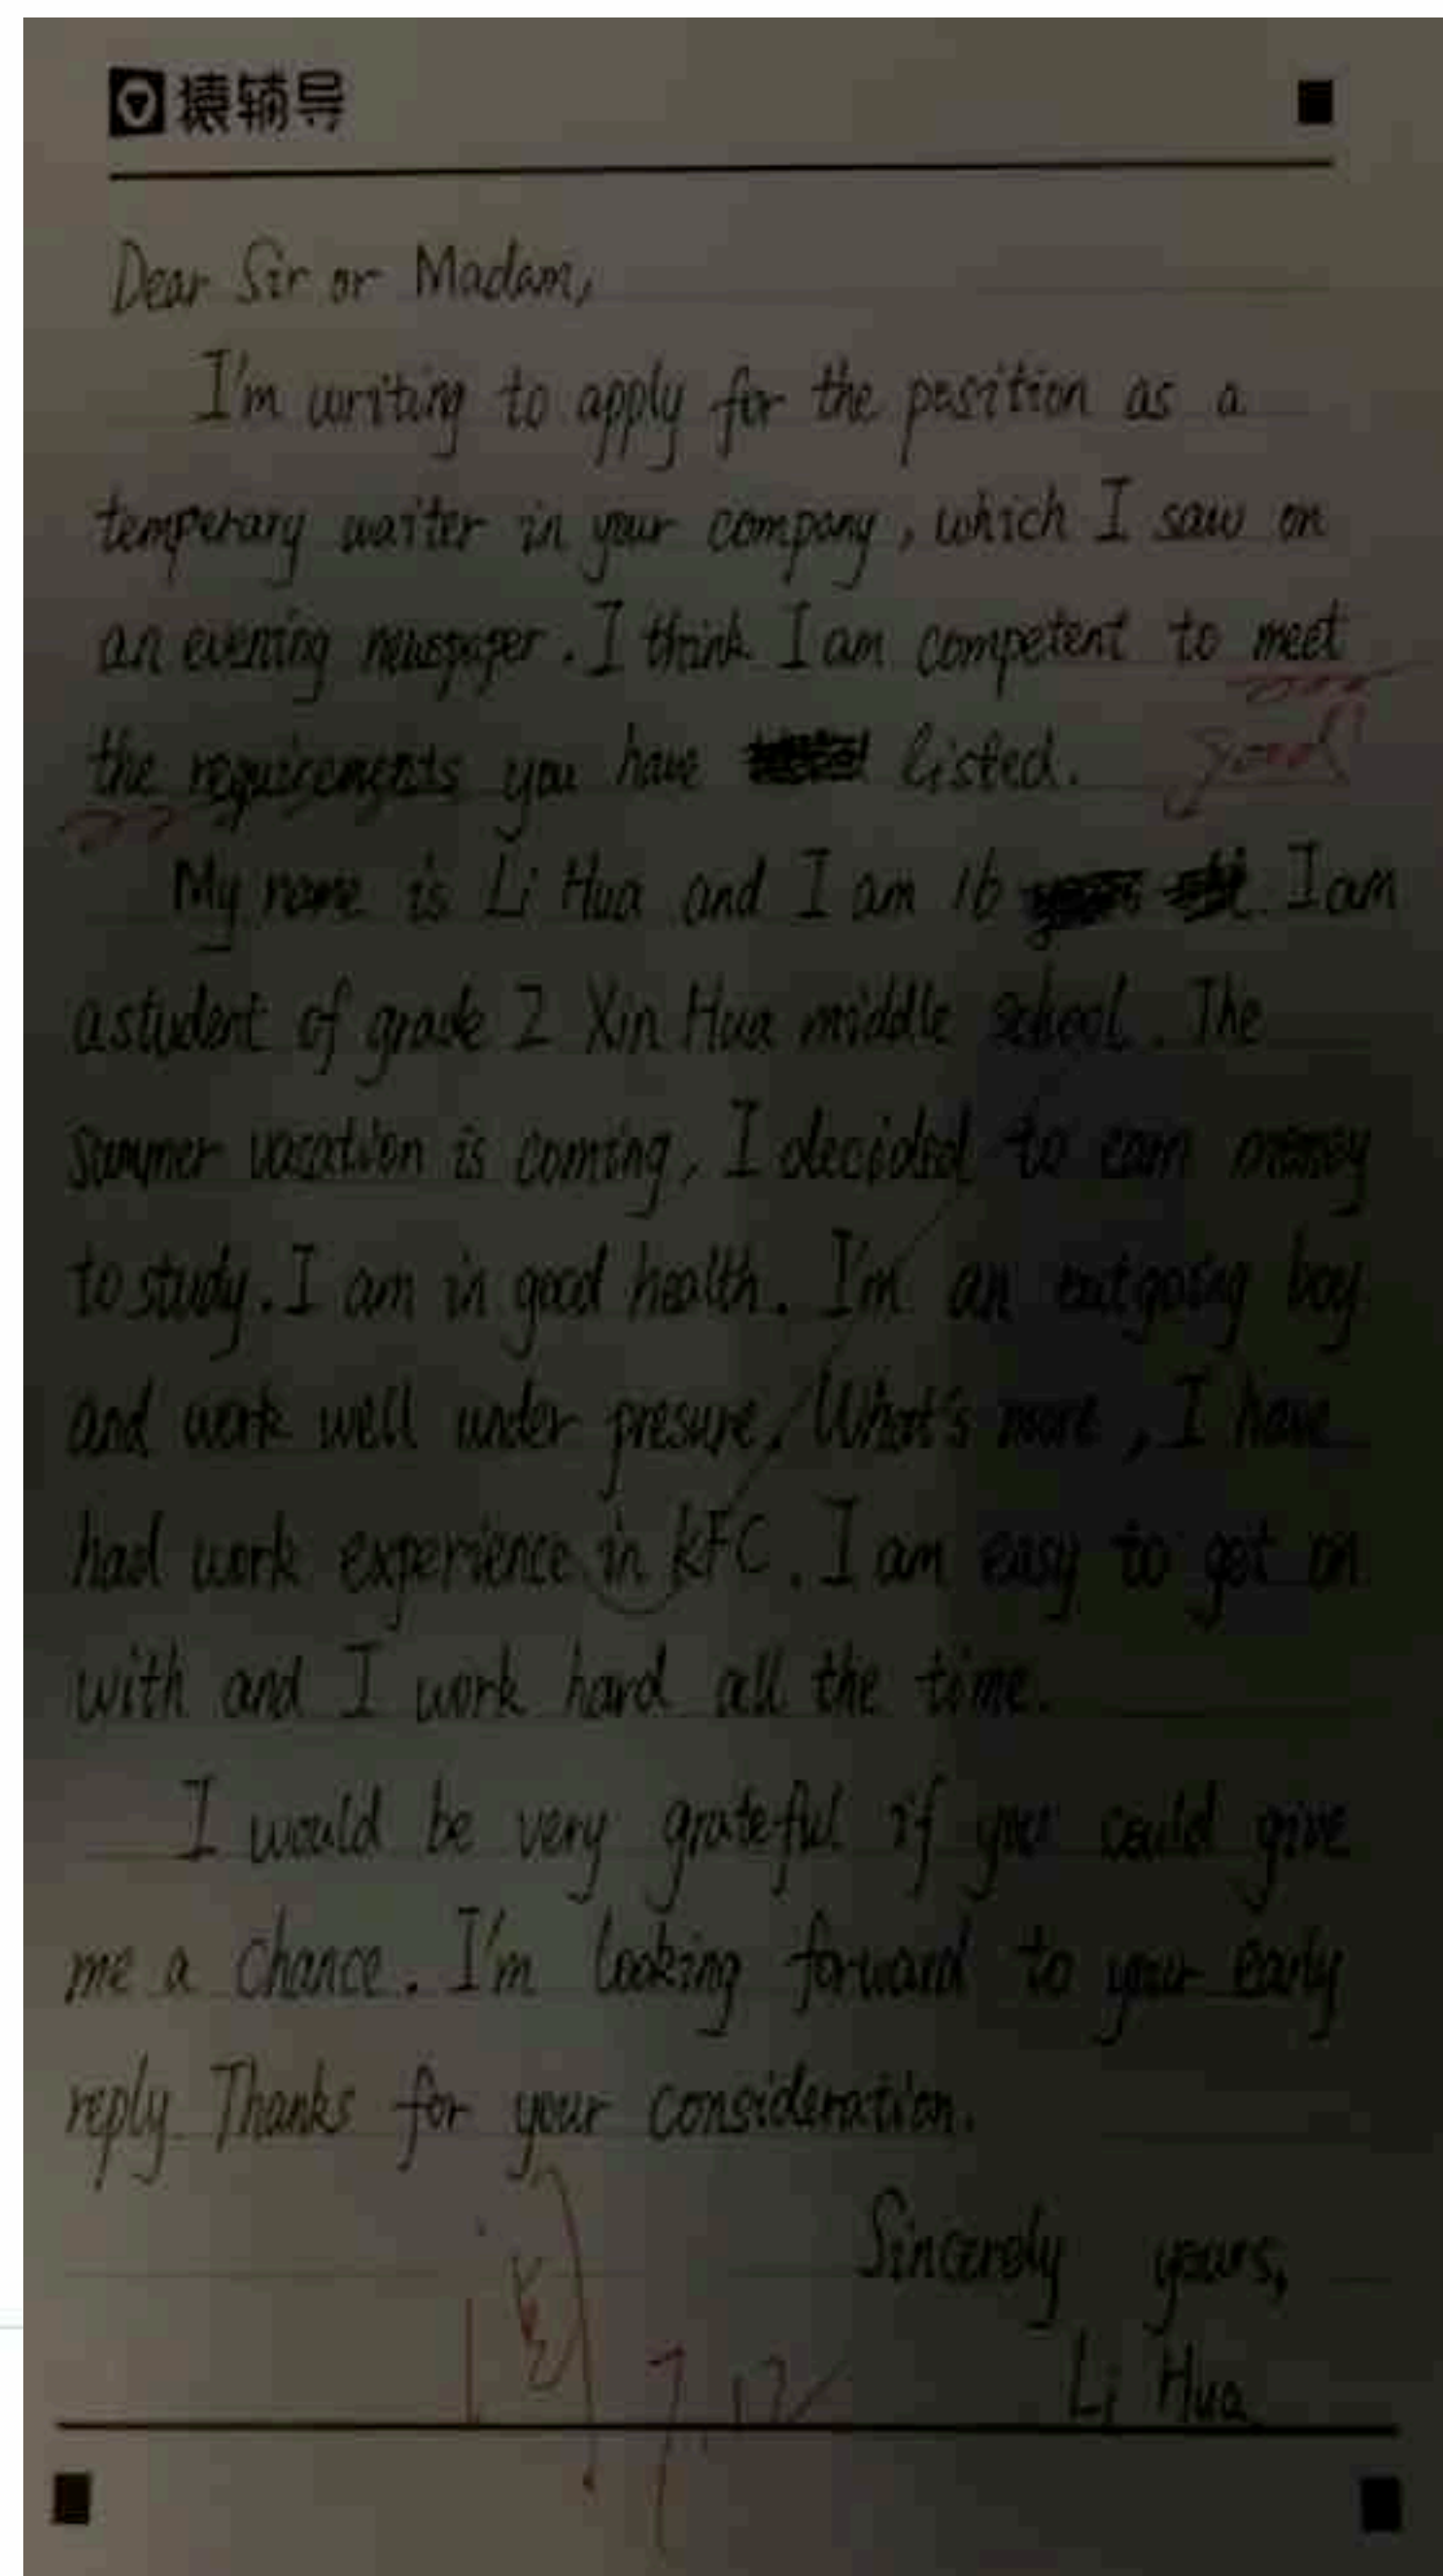 猿辅导
Dear Sir or Madam,
I'm writing to apply for the position as a
temperary waiter in your company, which I saw on
an evening newspaper. I think I am competent to meet
the requirements you have listed.
good
My name is Li Hua and I am 16 I am
a student of grade 2 Xin Hua middle school. The
summer vacation is coming, I decided to earn money
to study. I am in good health. I'm an outgoing boy
and work well under presure. What's more, I have
had work experience in kFC. I am easy to get on
with and I work hard all the time.
I would be very grateful if you could give
me a chance. I'm looking forward to your early
reply. Thanks for your consideration.
Sincerely yours,
Li Hua